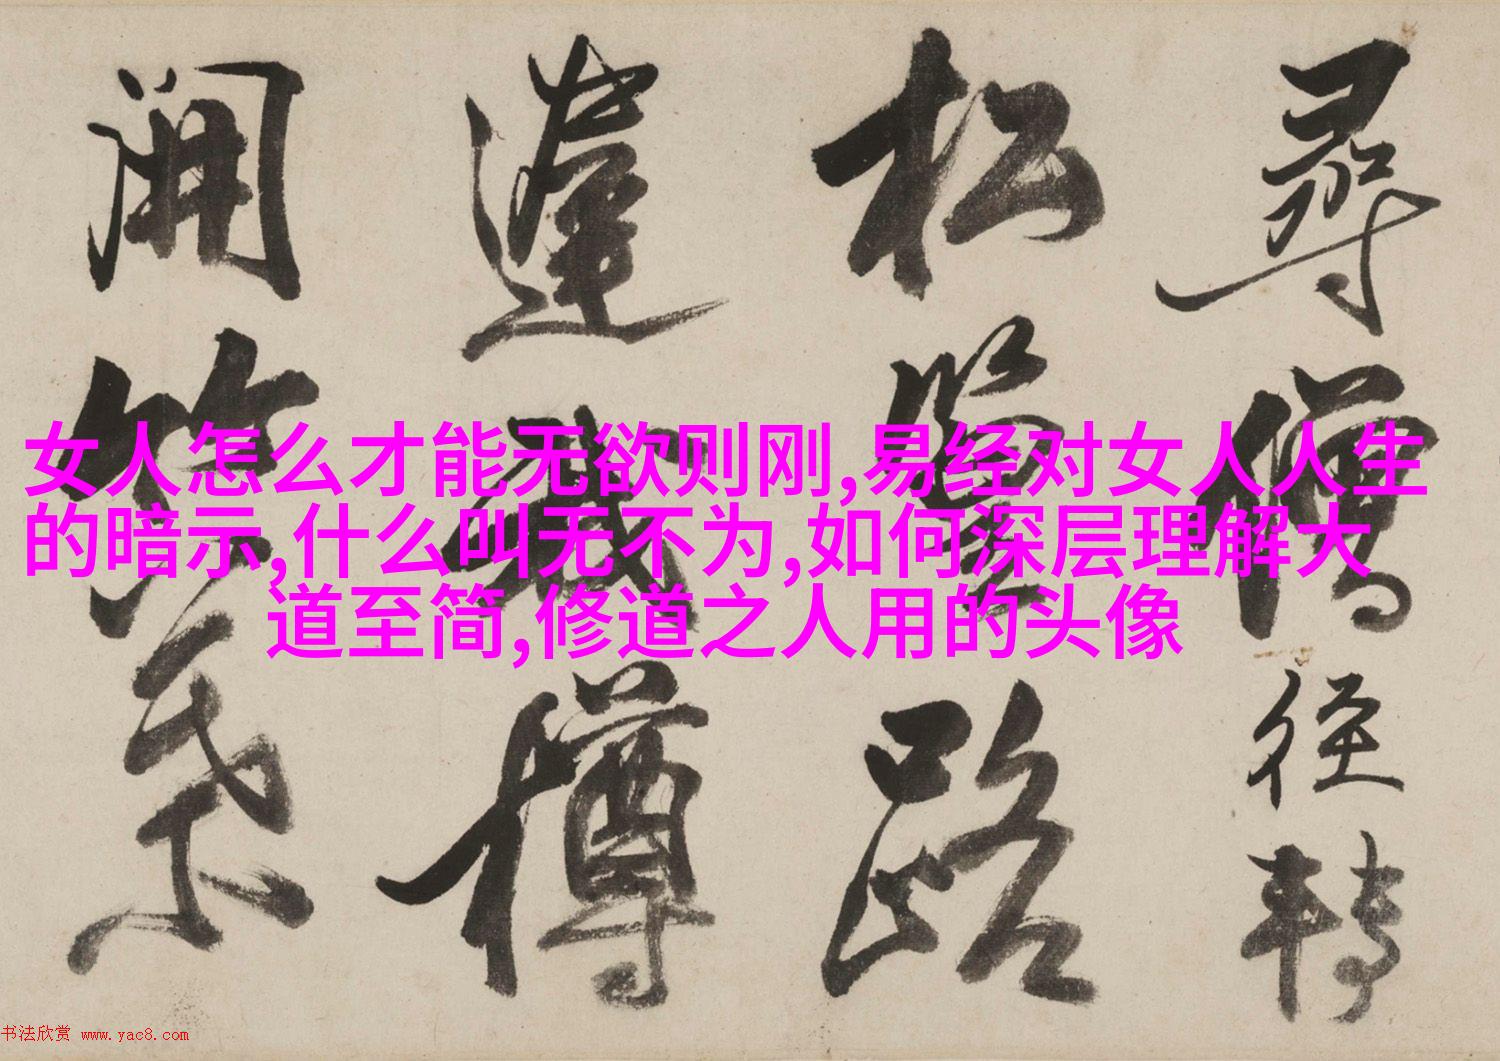 尋僧徑轉
松路
樽
開
女人怎么才能无欲则刚,易经对女人人生
的暗示,什么叫无不为,如何深层理解大
道至简,修道之人用的头像
书法欣赏 www.yac8.com